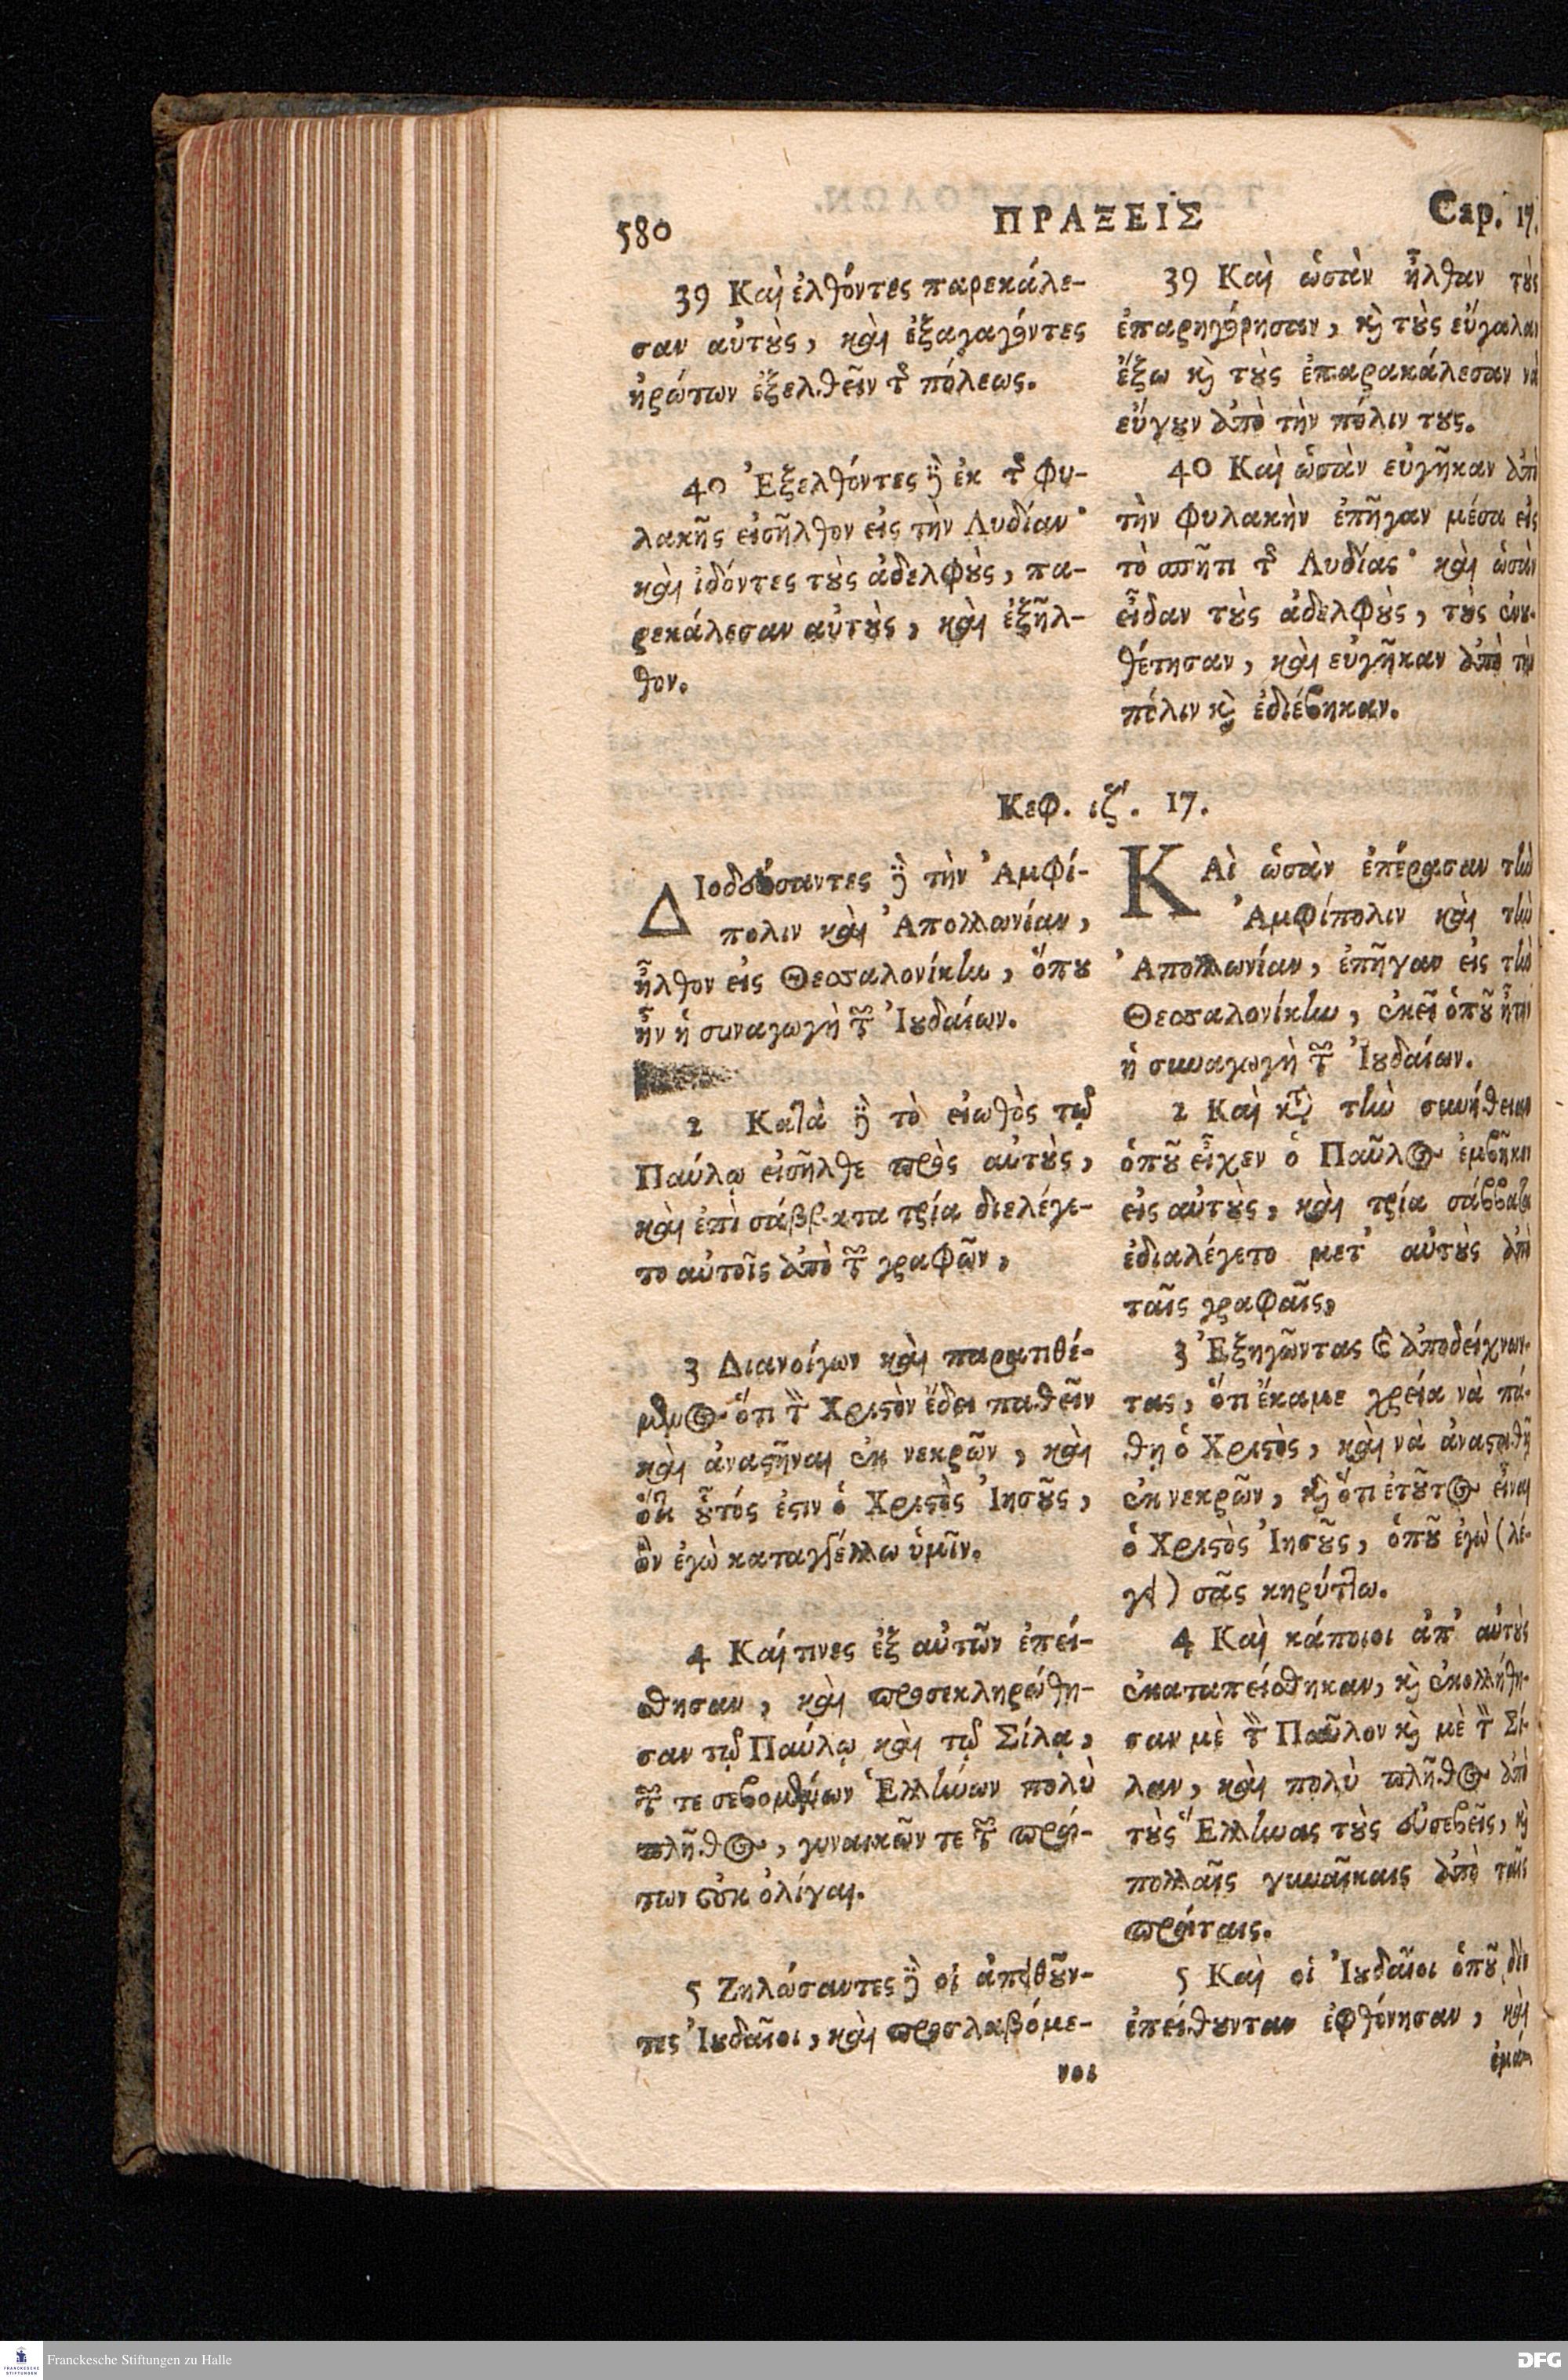 580 ΠΡΑΞΕΙΣ Cap. 17.
39 Καὶ ἐλθόντες παρεκάλε-
σαν αὐτοὺς, καὶ ἐξαγαγόντες
ἠρώτων ἐξελθεῖν τῆς πόλεως.
40 Ἐξελθόντες δὲ ἐκ τῆς φυ-
λακῆς εἰσῆλθον εἰς τὴν Λυδίαν·
καὶ ἰδόντες τοὺς ἀδελφοὺς, πα-
ρεκάλεσαν αὐτοὺς, καὶ ἐξῆλ-
θον.
39 Καὶ ὡσὰν ἦλθαν τοὺς
ἐπαρηγόρησαν, καὶ τοὺς εὔγαλαν
ἔξω καὶ τοὺς ἐπαρακάλεσαν νὰ
εὔγουν ἀπὸ τὴν πόλιν τους.
40 Καὶ ὡσὰν εὐγῆκαν ἀπὸ
τὴν φυλακὴν ἐπῆγαν μέσα εἰς
τὸ σπῆτι τῆς Λυδίας· καὶ ὡσὰν
εἶδαν τοὺς ἀδελφοὺς, τοὺς ἐνου-
θέτησαν, καὶ εὐγῆκαν ἀπὸ τὴν
πόλιν καὶ ἐδιέβηκαν.
Κεφ. ιζʹ. 17.
ΔΙοδεύσαντες δὲ τὴν Ἀμφί-
πολιν καὶ Ἀπολλωνίαν,
ἦλθον εἰς Θεσσαλονίκην, ὅπου
ἦν ἡ συναγωγὴ τῶν Ἰουδαίων.
2 Κατὰ δὲ τὸ εἰωθὸς τῷ
Παύλῳ εἰσῆλθε πρὸς αὐτοὺς,
καὶ ἐπὶ σάββατα τρία διελέγε-
το αὐτοῖς ἀπὸ τῶν γραφῶν,
3 Διανοίγων καὶ παρατιθέ-
μενος ὅτι τὸν Χριστὸν ἔδει παθεῖν
καὶ ἀναστῆναι ἐκ νεκρῶν, καὶ
ὅτι οὗτός ἐστιν ὁ Χριστὸς Ἰησοῦς,
ὃν ἐγὼ καταγγέλλω ὑμῖν.
4 Καί τινες ἐξ αὐτῶν ἐπεί-
σθησαν, καὶ προσεκληρώθη-
σαν τῷ Παύλῳ καὶ τῷ Σίλᾳ,
τῶν τε σεβομένων Ἑλλήνων πολὺ
πλῆθος, γυναικῶν τε τῶν πρώ-
των οὐκ ὀλίγαι.
5 Ζηλώσαντες δὲ οἱ ἀπειθοῦν-
τες Ἰουδαῖοι, καὶ προσλαβόμε-
νοι
ΚΑὶ ὡσὰν ἐπέρασαν τὴν
Ἀμφίπολιν καὶ τὴν
Ἀπολλωνίαν, ἐπῆγαν εἰς τὴν
Θεσσαλονίκην, ἐκεῖ ὁποῦ ἦτον
ἡ συναγωγὴ τῶν Ἰουδαίων.
2 Καὶ κατὰ τὴν συνήθειαν
ὁποῦ εἶχεν ὁ Παῦλος ἐμβῆκεν
εἰς αὐτοὺς, καὶ τρία σάββατα
ἐδιαλέγετο μετ' αὐτοὺς ἀπὸ
ταῖς γραφαῖς,
3 Ἐξηγῶντας καὶ ἀποδείχνων-
τας, ὅτι ἔκαμε χρεία νὰ πά-
θῃ ὁ Χριστὸς, καὶ νὰ ἀναστηθῇ
ἐκ νεκρῶν, καὶ ὅτι ἐτοῦτος εἶναι
ὁ Χριστὸς Ἰησοῦς, ὁποῦ ἐγὼ (λέ-
γει) σᾶς κηρύττω.
4 Καὶ κάποιοι ἀπ' αὐτοὺς
ἐκαταπείσθηκαν, καὶ ἐκολλήθη-
σαν μὲ τὸν Παῦλον καὶ μὲ τὸν Σί-
λαν, καὶ πολὺ πλῆθος ἀπὸ
τοὺς Ἕλληνας τοὺς εὐσεβεῖς, καὶ
πολλαῖς γυναῖκαις ἀπὸ ταῖς
πρώταις.
5 Καὶ οἱ Ἰουδαῖοι ὁποῦ δὲν
ἐπείθουνταν ἐφθόνησαν, καὶ
Franckesche Stiftungen zu Halle
FRANCKESCHE STIFTUNGEN
DFG